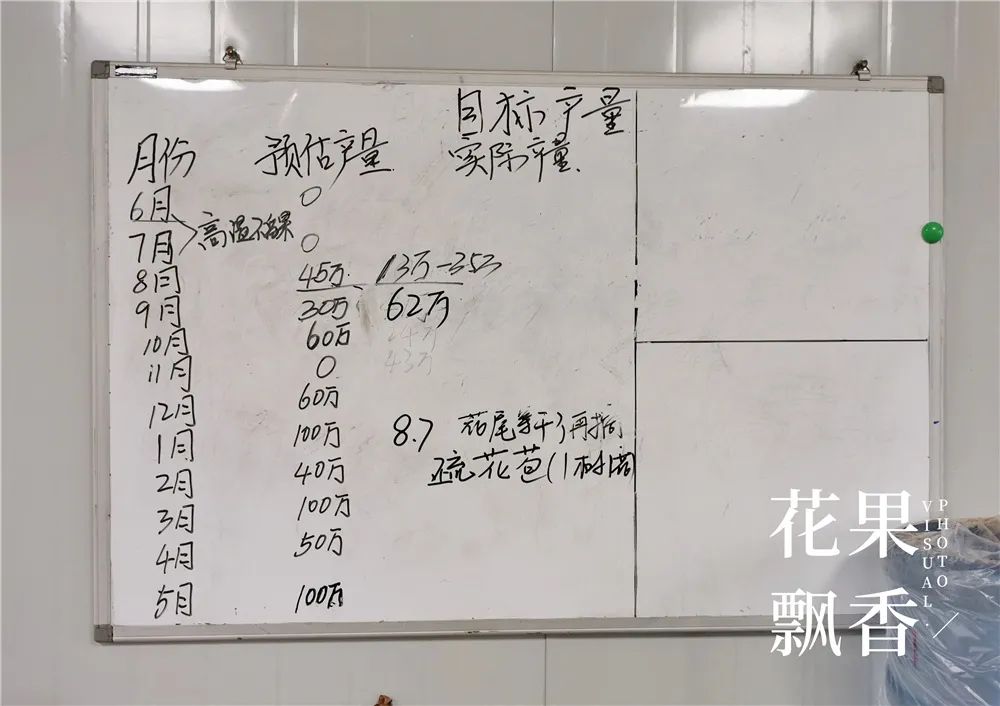 目标产量
月份 预估产量 实际产量
6月 0
高温不留果
7月 0
8月 45万 13万-35万
9月 30万 62万
10月 60万 24万
11月 0 43万
12月 60万
1月 100万
8.7 花尾等干了再摘
2月 40万
疏花苞(1树
3月 100万
4月 50万
5月 100万
花果
飘香
VISUAL
PHOTO